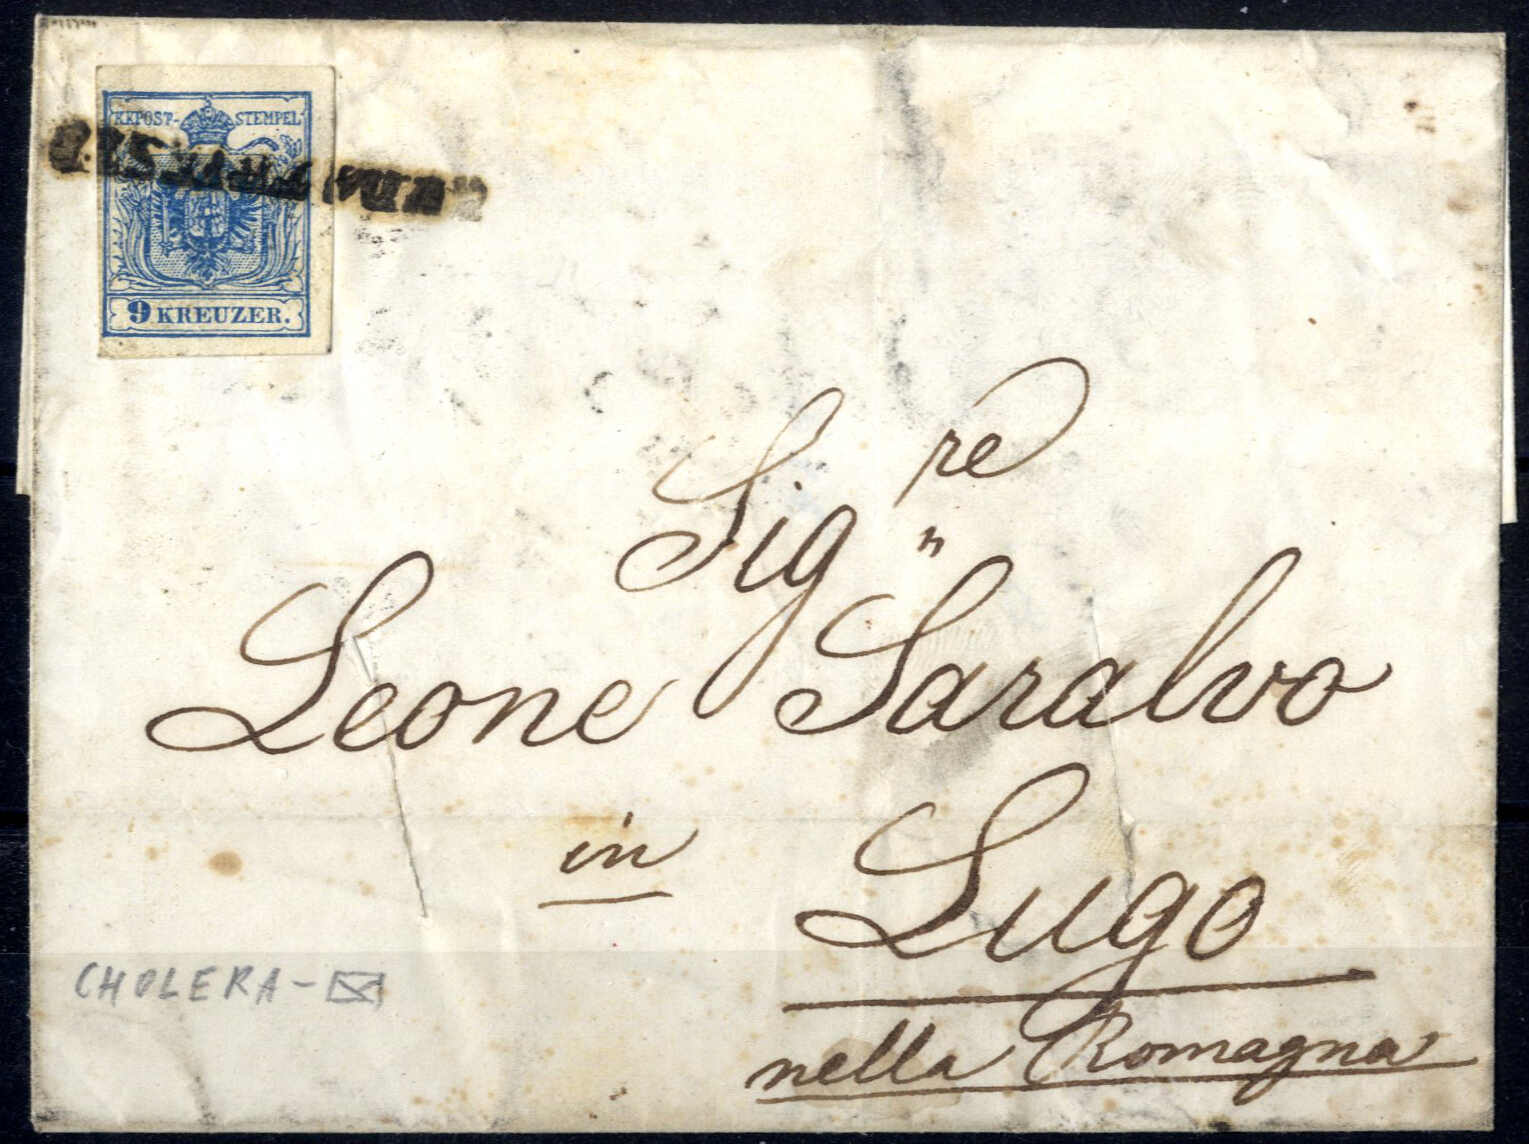 KKPOST-STEMPEL
9 KREUZER.
Sig re
"
Leone Saralvo
in Lugo
nella Romagna
CHOLERA -